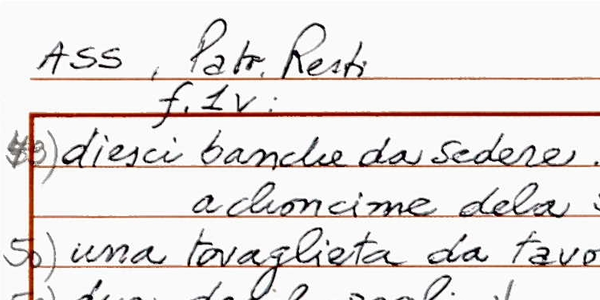 ASS, Patr. Resti
f. 1v:
diesci banche da sedere.
achoncime dela
50) una tovaglieta da tavo